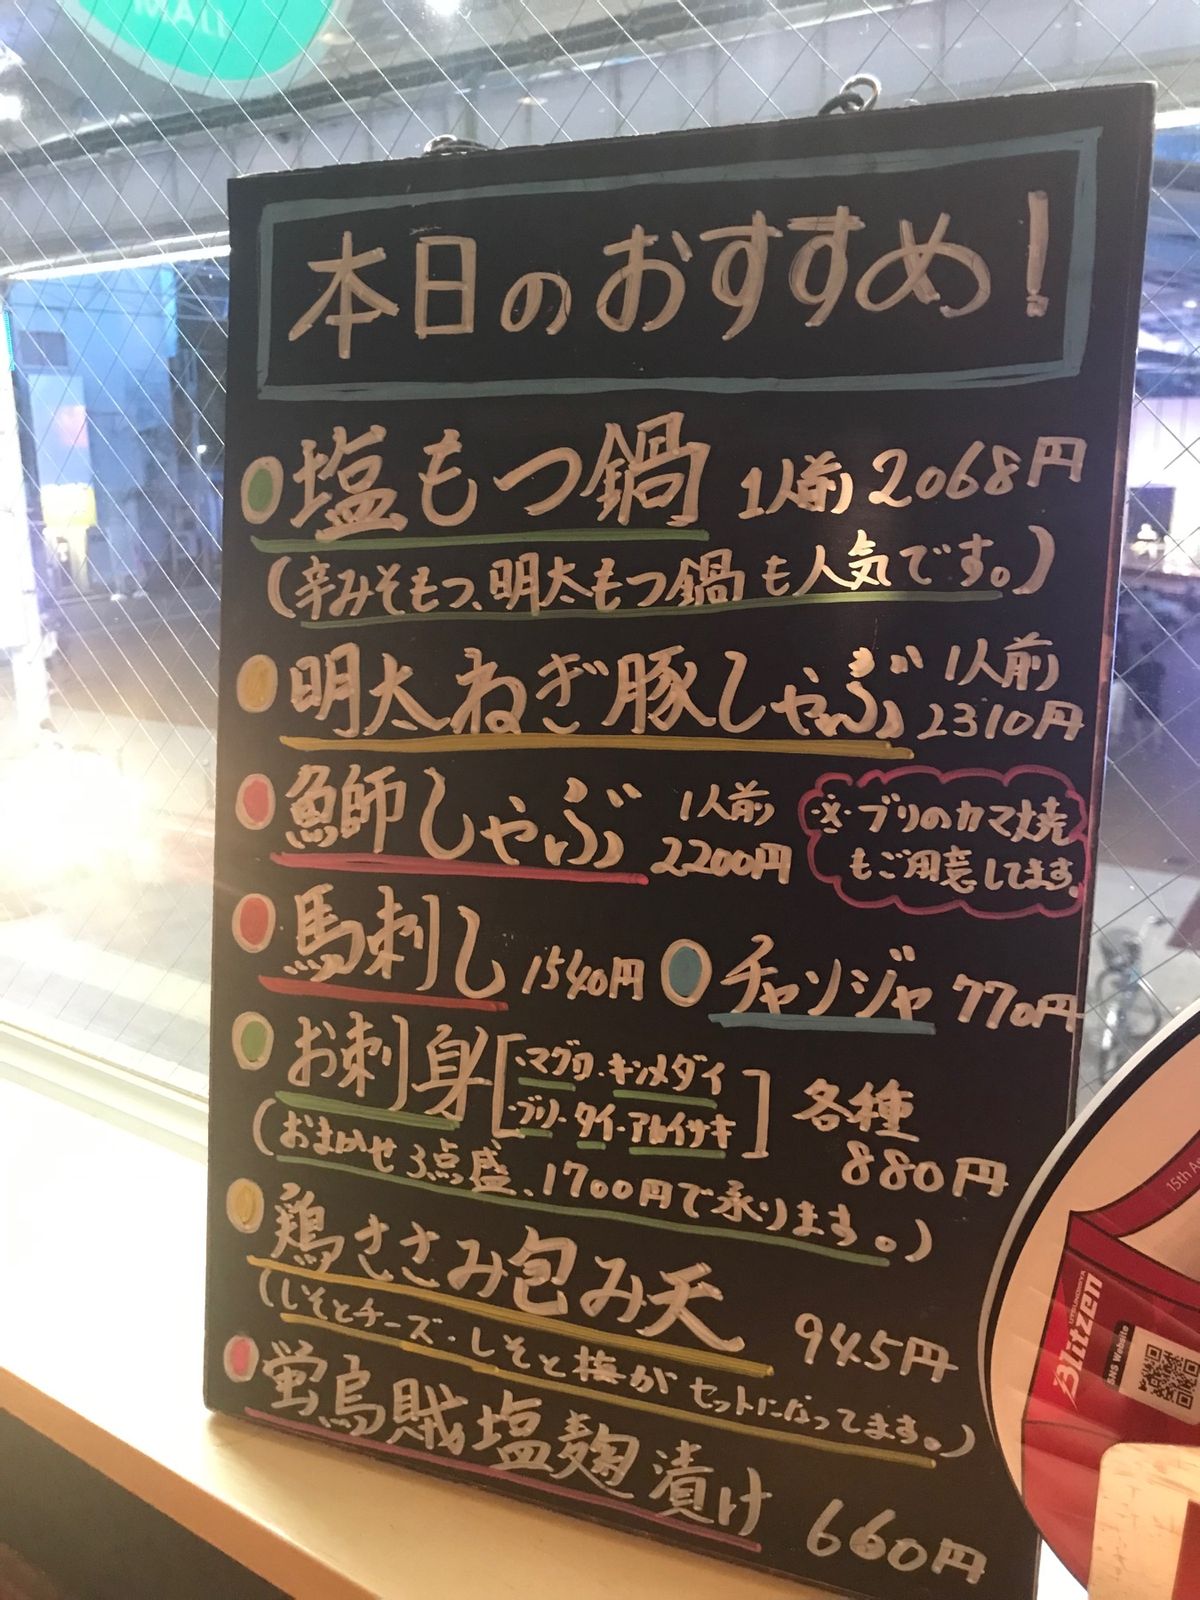 本日のおすすめ!
塩もつ鍋 1人前 2068円
(辛みそもつ、明太もつ鍋も人気です。)
明太ねぎ豚しゃぶ 1人前 2310円
魚師しゃぶ 1人前 2200円
※ブリのカマ焼
もご用意してます。
馬刺し 1540円
チャンジャ 770円
お刺身[・マグロ・キンメダイ
・ブリ・タイ・アカイサキ] 各種 880円
(おまかせ3点盛、1700円で承ります。)
鶏ささみ包み天 945円
(しそとチーズ・しそと梅がセットになってます。)
蛍烏賊塩麹漬け 660円
15th
Blitzen
SNS Website